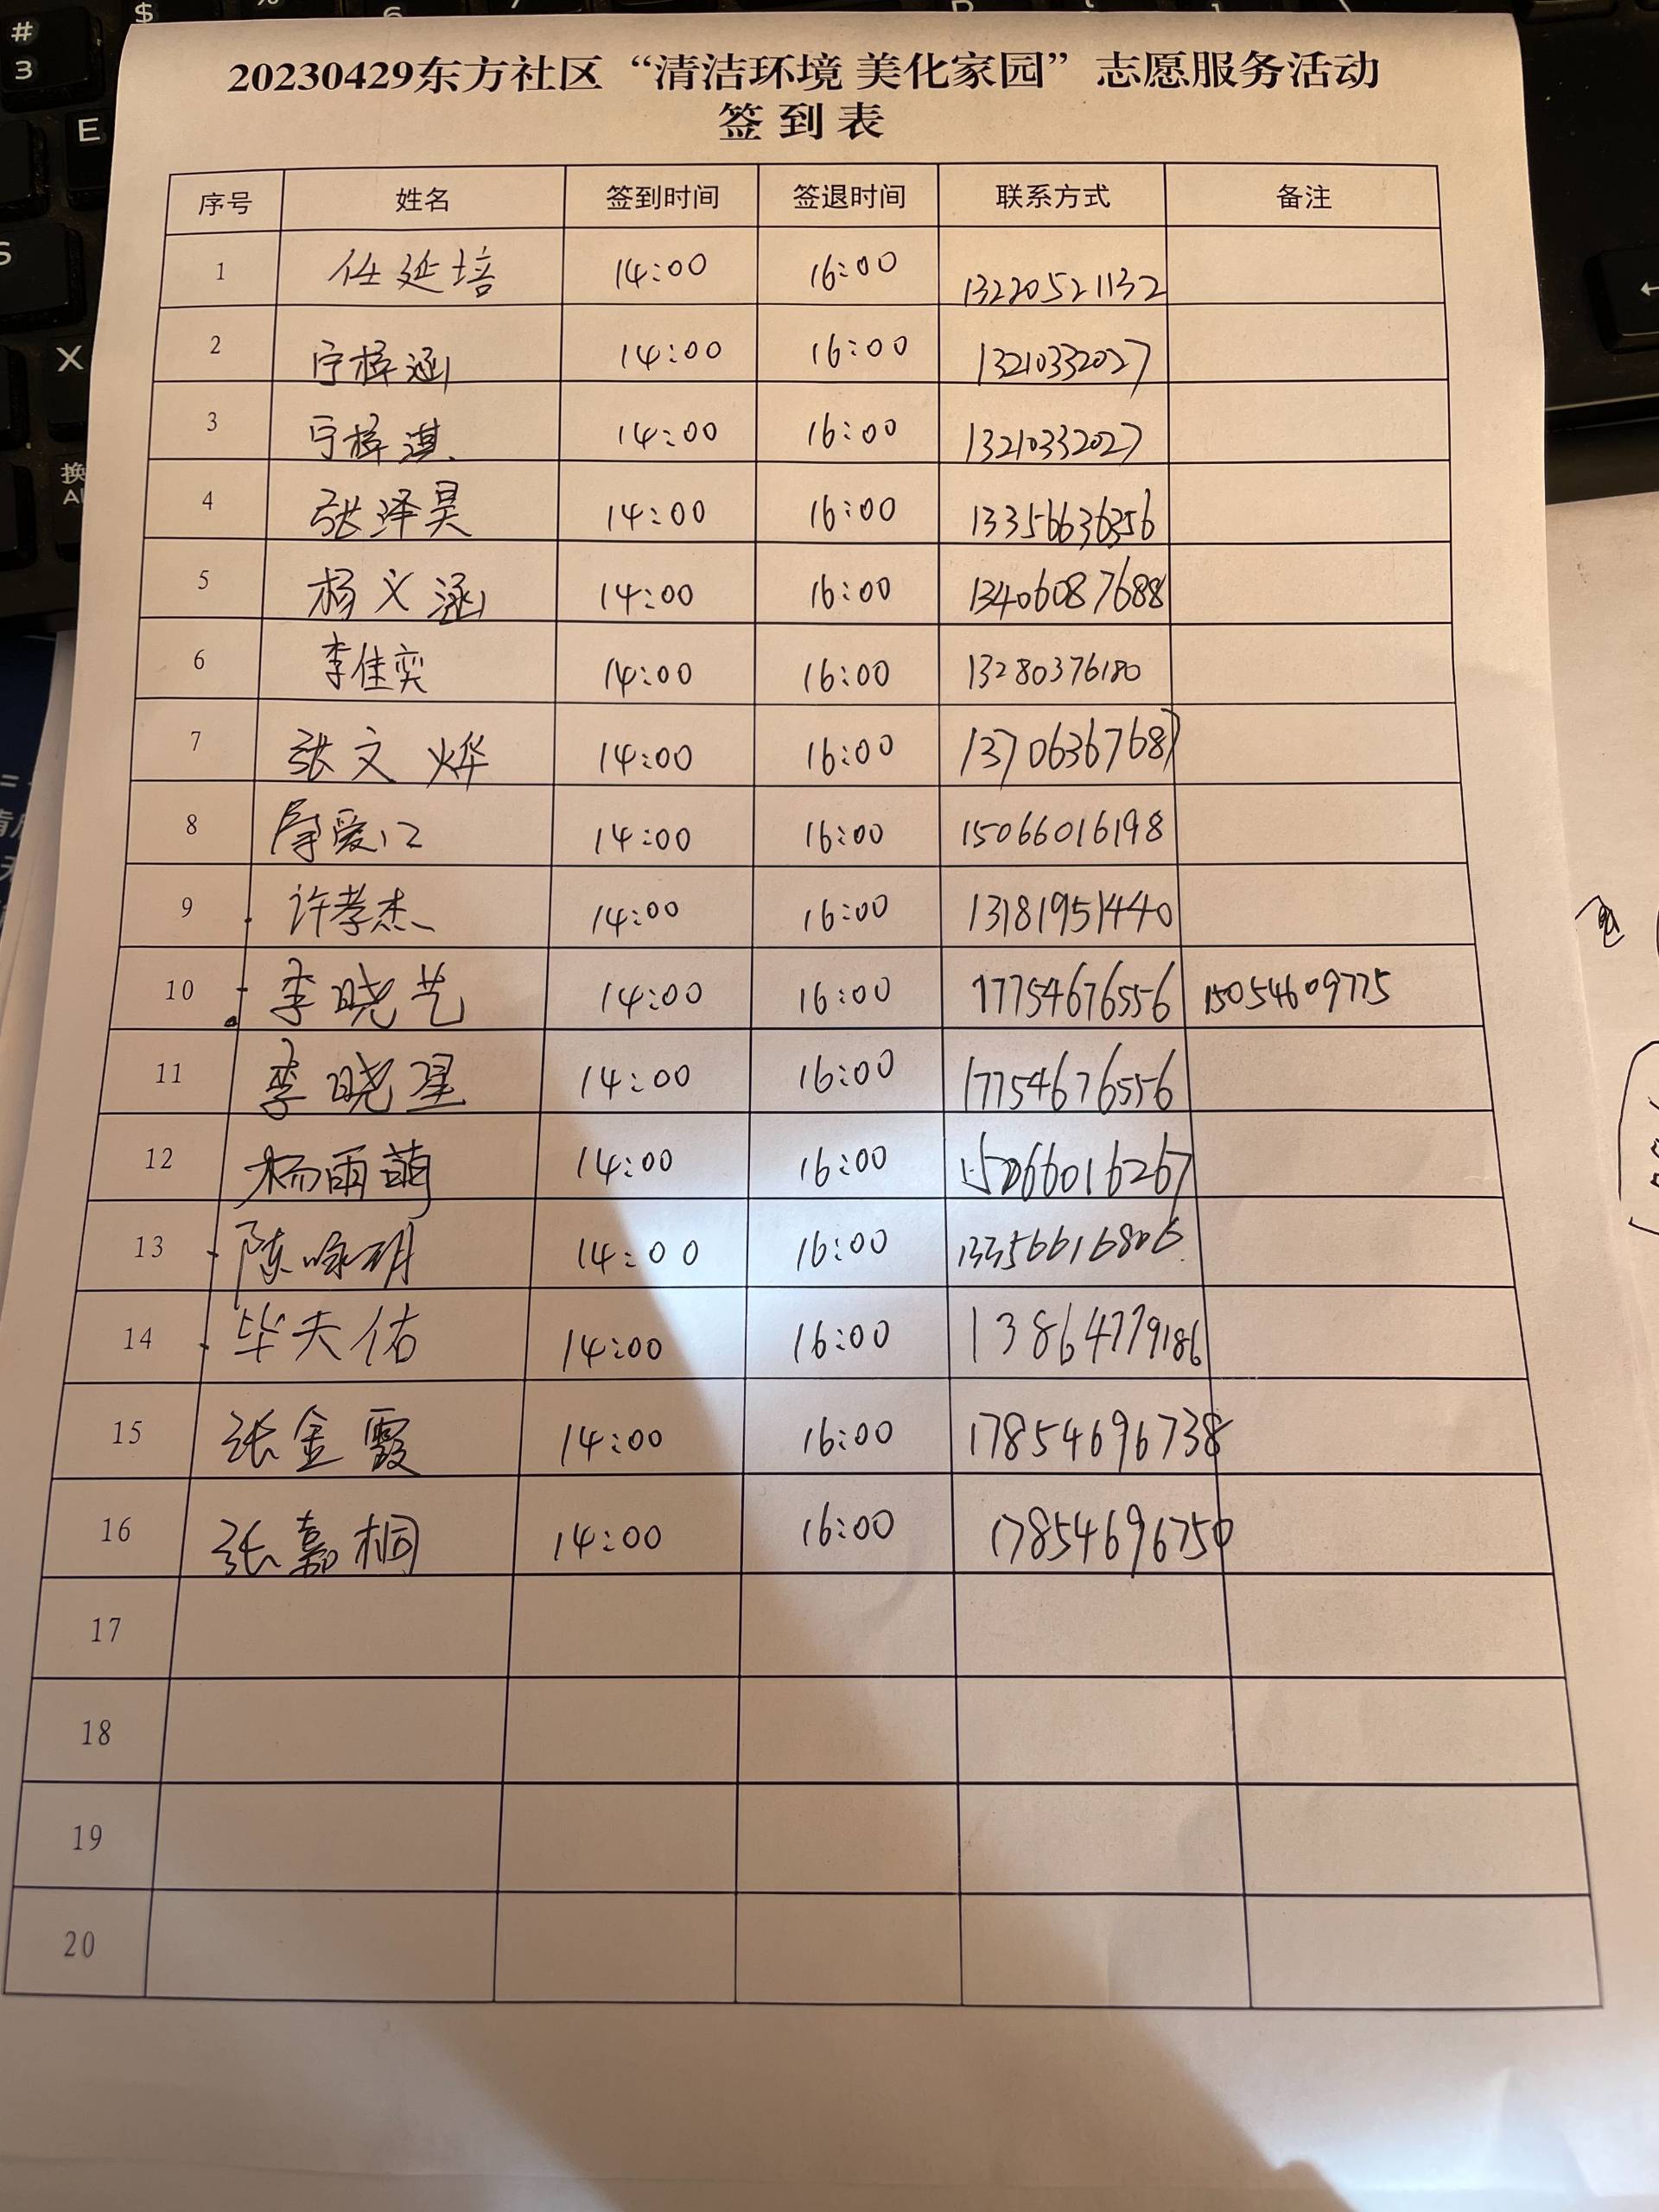 20230429东方社区“清洁环境 美化家园”志愿服务活动
签到表
序号 姓名 签到时间 签退时间 联系方式 备注
1 任延培 14:00 16:00 13220521132
2 宁梓涵 14:00 16:00 13210332027
3 宁梓淇 14:00 16:00 13210332027
4 张泽昊 14:00 16:00 13356636356
5 杨义涵 14:00 16:00 13406087688
6 李佳奕 14:00 16:00 13280376180
7 张文烨 14:00 16:00 13706367687
8 14:00 16:00 15066016198
9 许孝杰 14:00 16:00 13181951440
10 李晓艺 14:00 16:00 17754676556 15054609775
11 李晓星 14:00 16:00 17754676556
12 杨雨萌 14:00 16:00 15066016267
13 陈咏玥 14:00 16:00 13356616806
14 毕天佑 14:00 16:00 13864779186
15 张金霞 14:00 16:00 17854696738
16 张嘉桐 14:00 16:00 17854696750
17
18
19
20